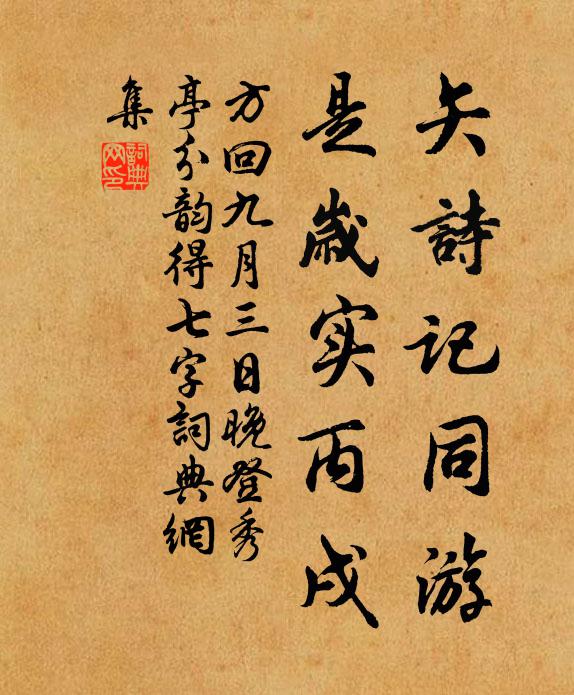 矢詩記同游
是歲实丙戌
方回九月三日晚登秀
亭分韵得七字詞典網
集
詞典网印